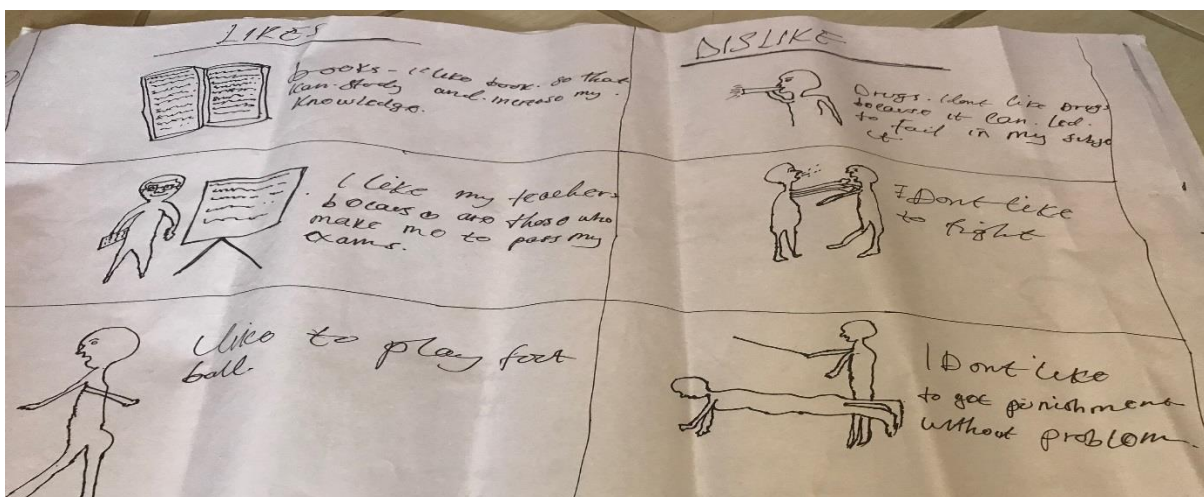 LIKES
books - I like book. so that
can. study and. increase my.
knowledge.
I like my teachers
because are those who
make me to pass my
exams.
I like to play foot
ball.
DISLIKE
Drugs. I dont like Drugs
because it can. led.
to fail in my subje
ct.
I Dont like
to fight
I Dont like
to get punishment
without problem.